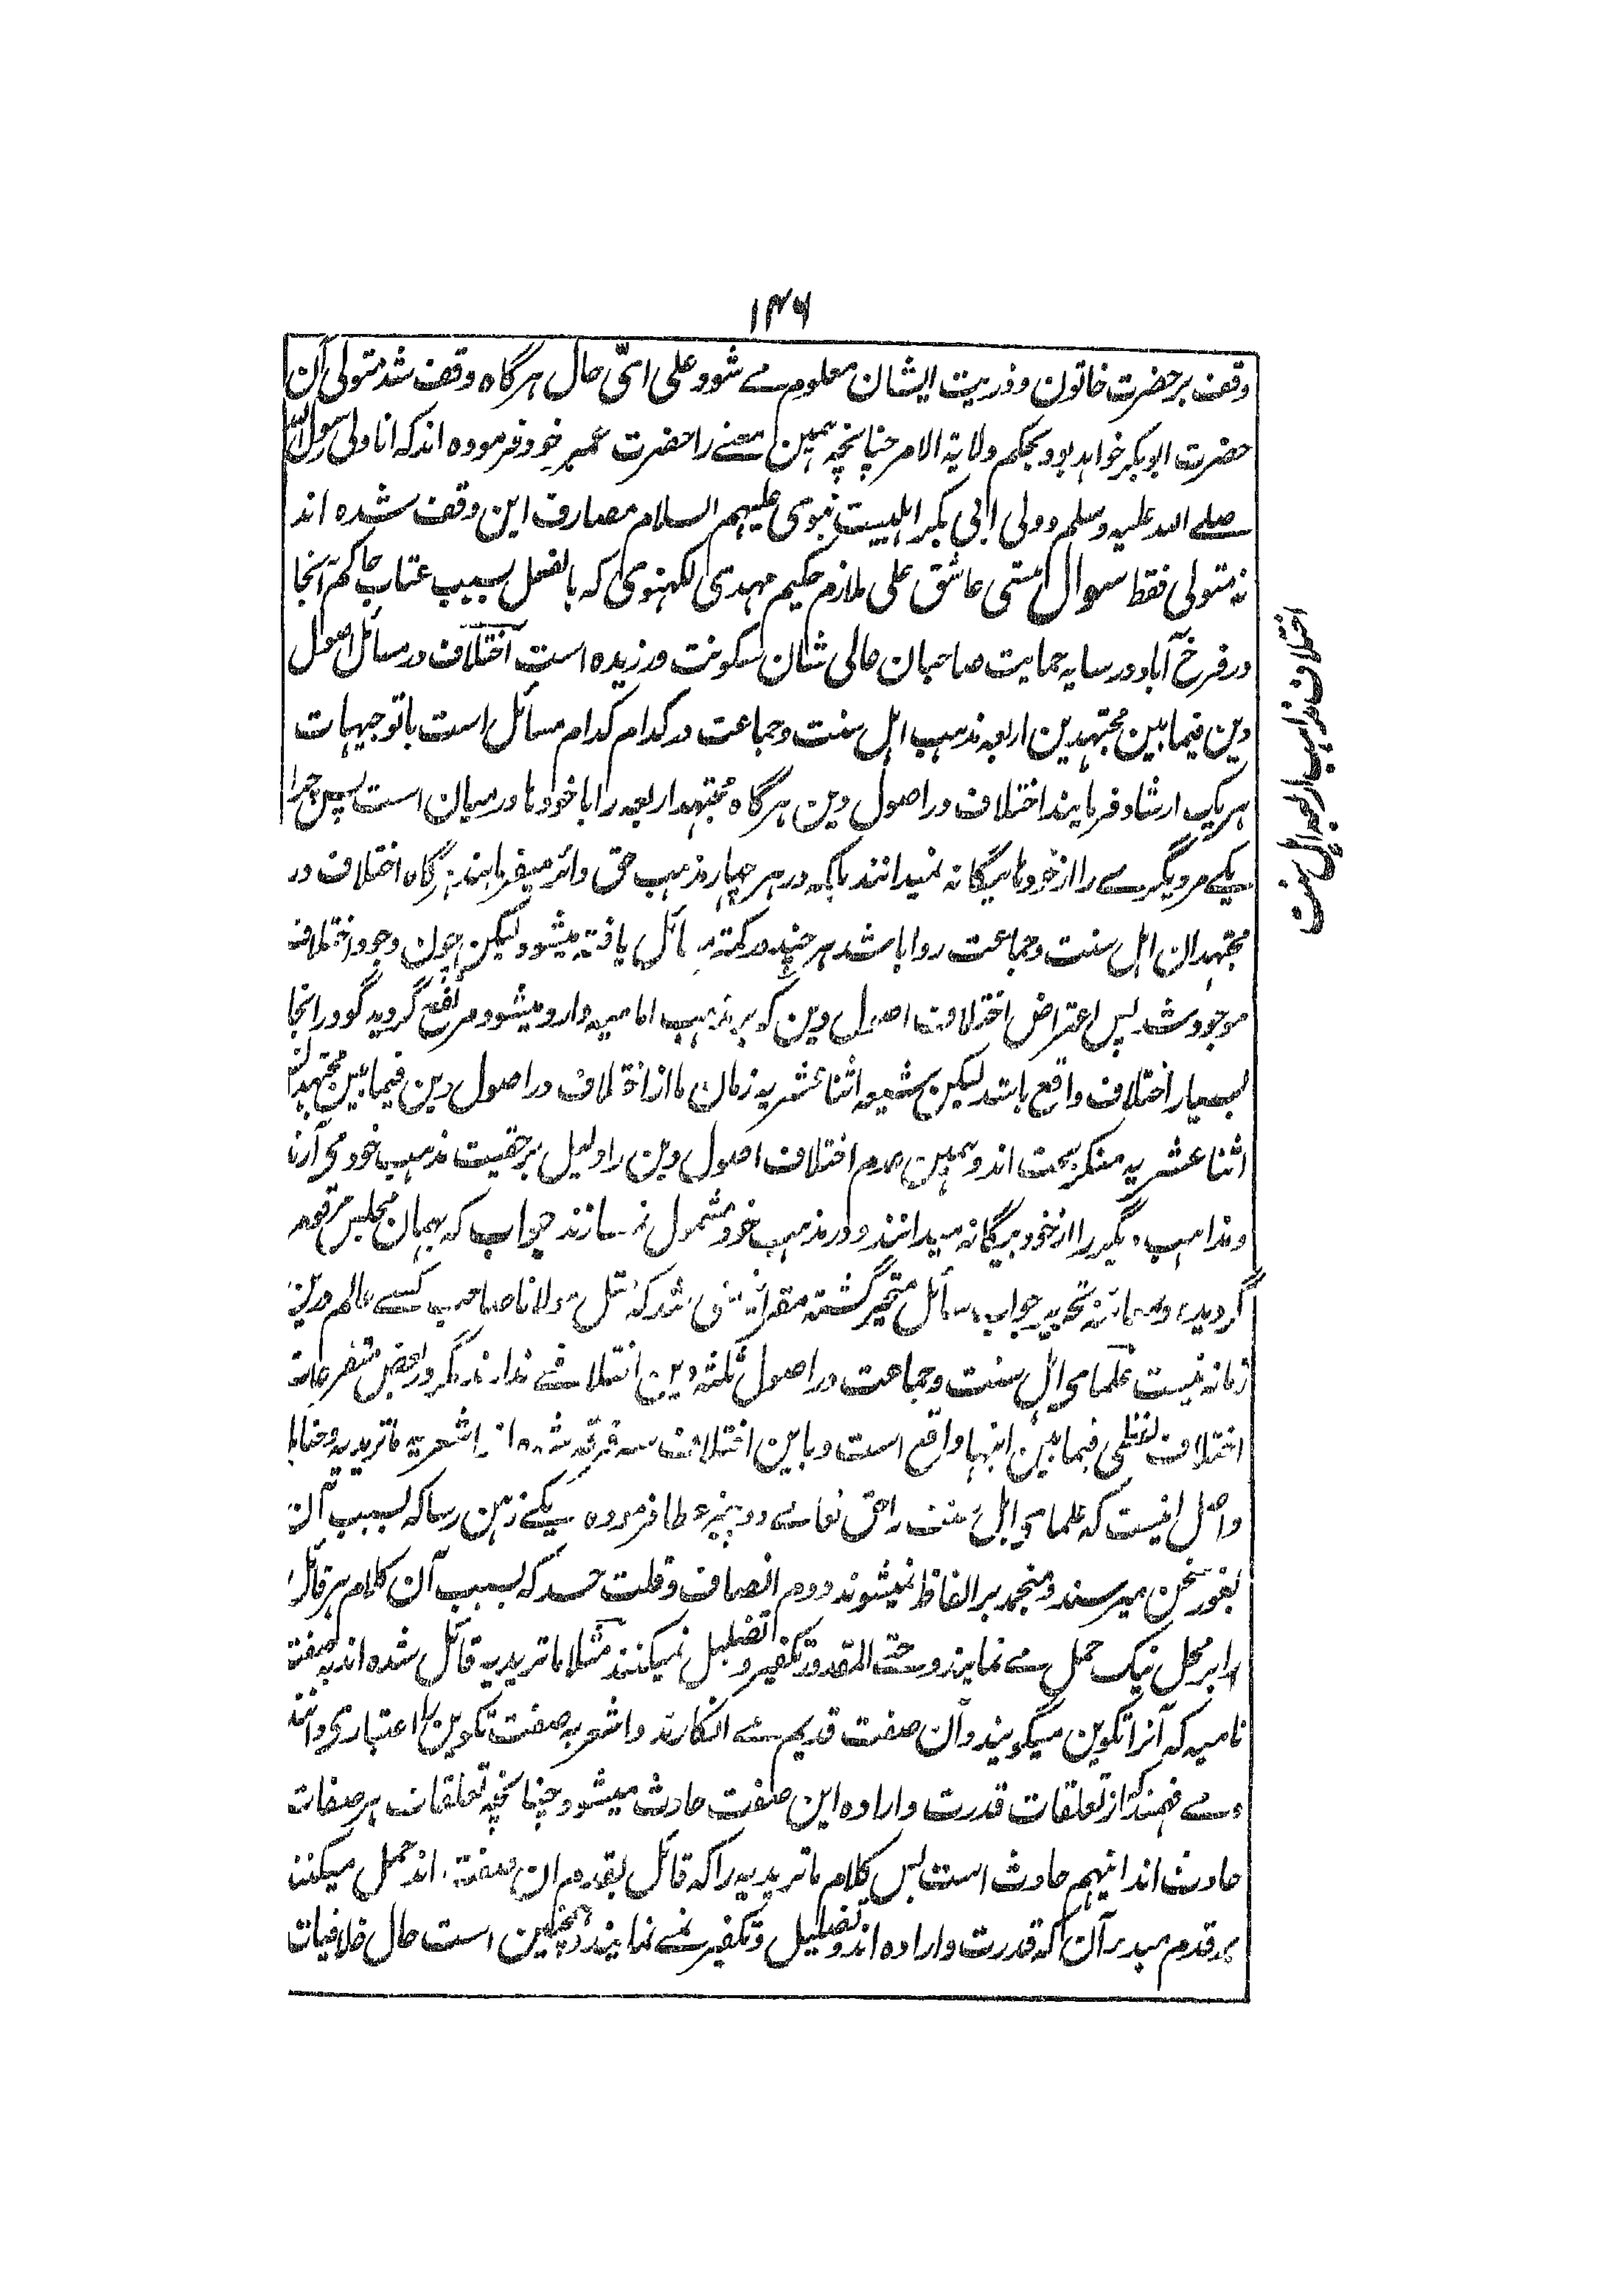 ۱۴۶
وقف بر حضرت خاتون و ذریت ایشان معلوم مے شود و علی ای حال هرگاه وقف شد متولی آن
حضرت ابوبکر خواهد بود بحکم ولایة الامر چنانچه همین معنے را حضرت عمر خود فرموده اند که انا ولی رسول الله
صلے الله علیه وسلم و ولی ابی بکر اهلبیت نبوی علیهم السلام مصارف این وقف شده اند
نه متولی فقط سوال مسمی عاشق علی ملازم حکیم مهدی لکهنوی که بالفعل بسبب عتاب حاکم آنجا
در فرخ آباد در سایه حمایت صاحبان عالی شان سکونت ورزیده است اختلاف در مسائل اصول
دین فیما بین مجتهدین اربعه مذهب اهل سنت و جماعت در کدام کدام مسائل است با توجیهات
هر یک ارشاد فرمایند اختلاف در اصول دین هرگاه مجتهد اربعه را با خودها درمیان است پس چرا
یکے مر دیگرے را از خودها بیگانه نمیدانند بلکه در هر چهار مذهب حق دائر میفرمایند هرگاه اختلاف در
مجتهدان اهل سنت و جماعت روا باشد هر چند در کمتر مسائل یافته میشود لیکن چون وجود اختلاف
موجود شد پس اعتراض اختلاف اصول دین که بر مذهب امامیه وارد میشود مرتفع گردید گو در آنجا
بسیار اختلاف واقع باشد لیکن شیعه اثنا عشریه زمان ما از اختلاف در اصول دین فیما بین مجتهدان
اثنا عشریه منکر بحت اند و همین عدم اختلاف اصول دین را دلیل بر حقیت مذهب خود می آرند
و مذاهب دیگر را از خود بیگانه میدانند و در مذهب خود مشمول نمے سازند جواب که بهمان مجلس مرقوم
گردید و تحریر جواب سائل متحیر گشته شد که مثل مولانا صاحب کسے عالم درین
زمانه نیست علمای اهل سنت و جماعت در اصول ثلثه دین اختلافے ندارند مگر در بعض متفرعات
اختلاف لفظی فیما بین اینها واقع است و باین اختلاف سه فرقه شده اند اشعریه ماتریدیه و حنابله
و اصل اینست که علمای اهل سنت را حق تعالے دو چیز عطا فرموده یکے ذهن رسا که بسبب آن
بغور سخن میرسند و منجمد بر الفاظ نمیشوند دوم انصاف و قلت حسد که بسبب آن کلام هر قائل
را بر محمل نیک حمل مے نمایند و حتے المقدور تکفیر و تضلیل نمیکنند مثلا ماتریدیه قائل شده اند به صفت
نامیه که آنرا تکوین میگویند و آن صفت قدیم مے انکارند و اشعریه صفت تکوین را اعتباری دانند
و مے فهمند که از تعلقات قدرت و اراده این صفت حادث میشود چنانچه تعلقات هر صفات
حادث اند اینهم حادث است پس کلام ماتریدیه را که قائل بقدم آن صفت اند حمل میکنند
بر قدم مبدء آن که قدرت و اراده اند و تضلیل و تکفیر نمے نمایند و همچنین است حال خلافیات
اختلاف مذاهب اربعه اهل سنت